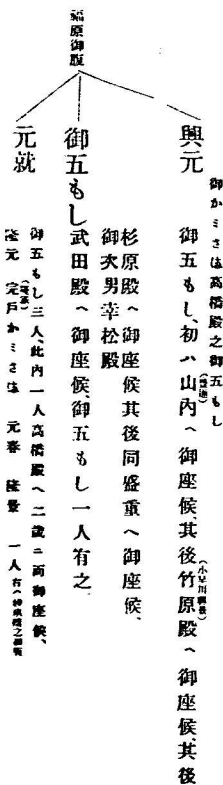 福原御腹
興元
御かミさは高橋殿之御五もし
御五もし、初ハ山内へ御座候、其後竹原殿へ御座候、其後
杉原殿へ御座候、其後同盛重へ御座候、
御次男幸松殿
御五もし
武田殿へ御座候、御五もし一人有之、
元就
御五もし三人、此内一人高橋殿へ二歳ニ而御座候、
隆元 宍戸かミさは 元春 隆景 一人